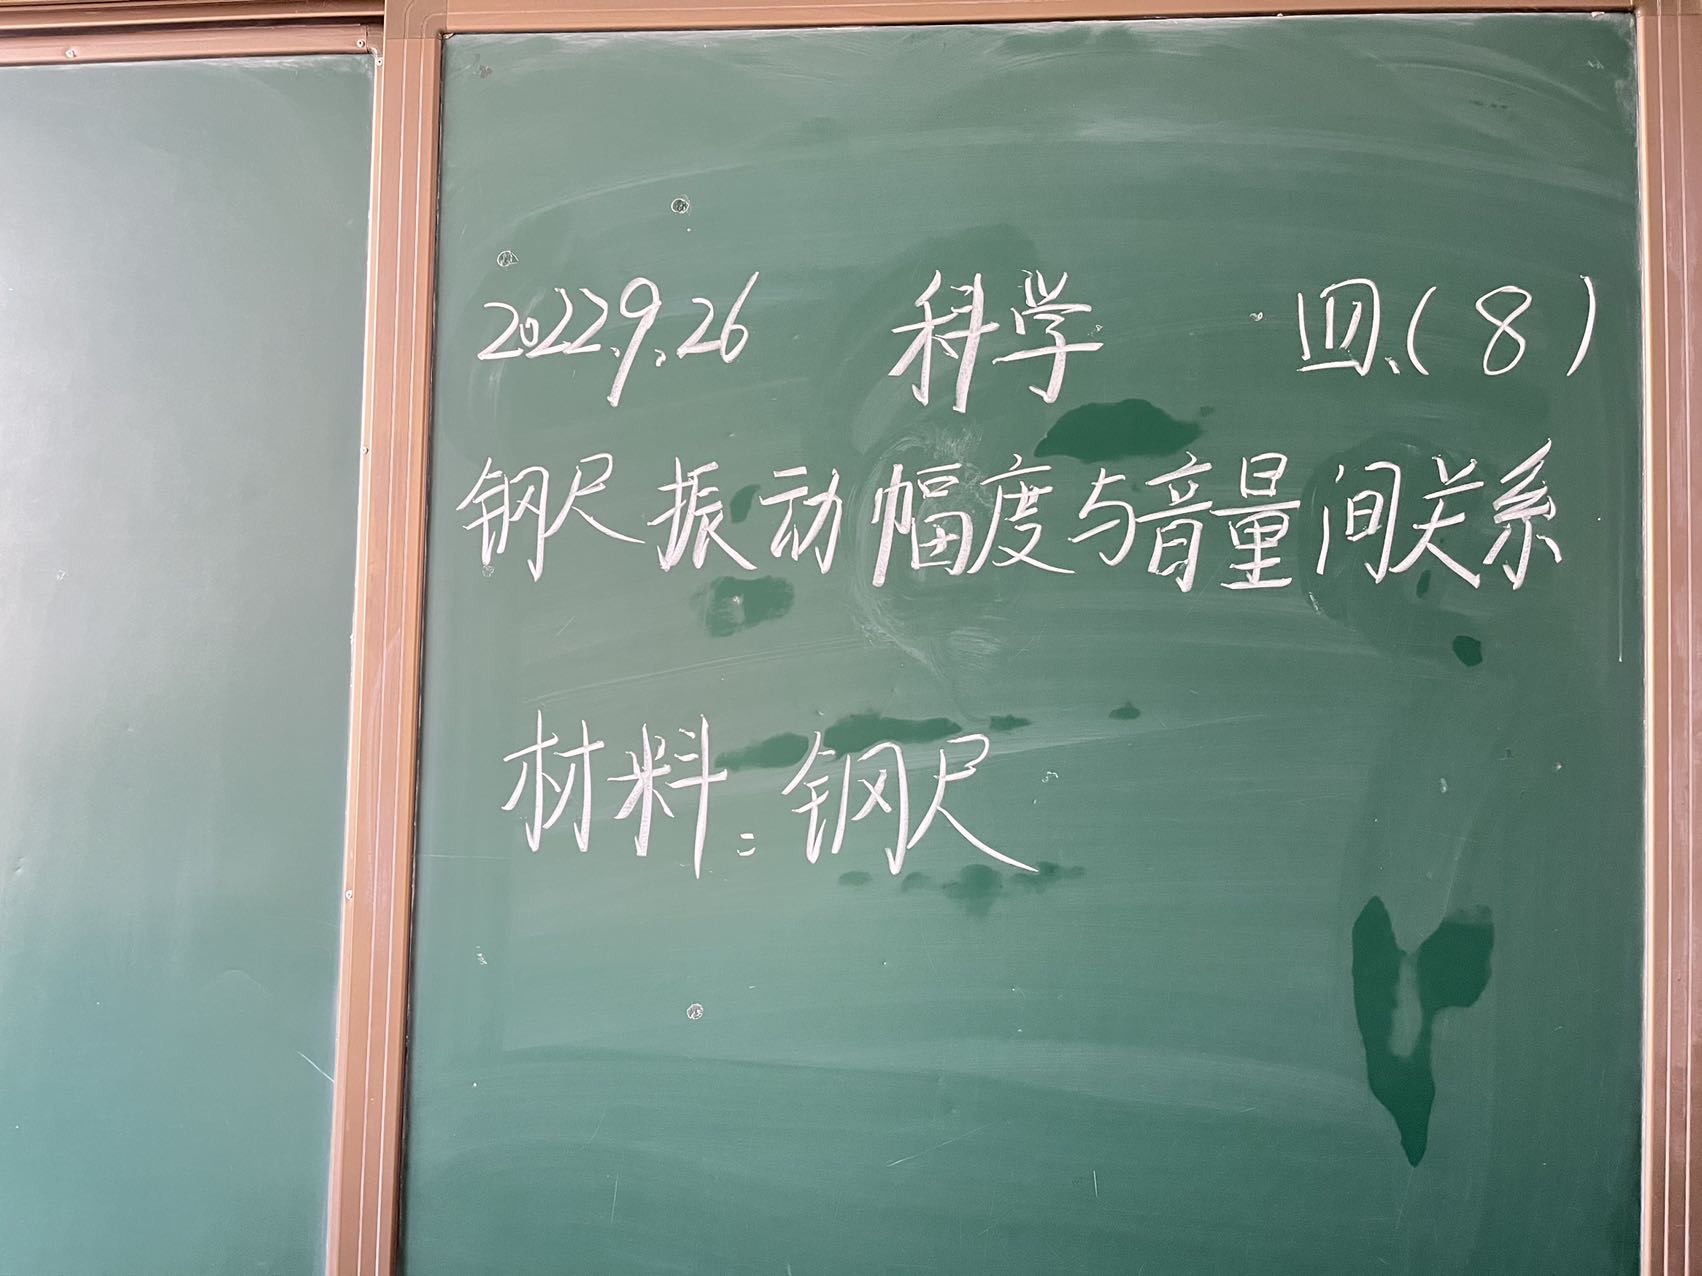 2022.9.26 科学 四.(8)
钢尺振动幅度与音量间关系
材料:钢尺